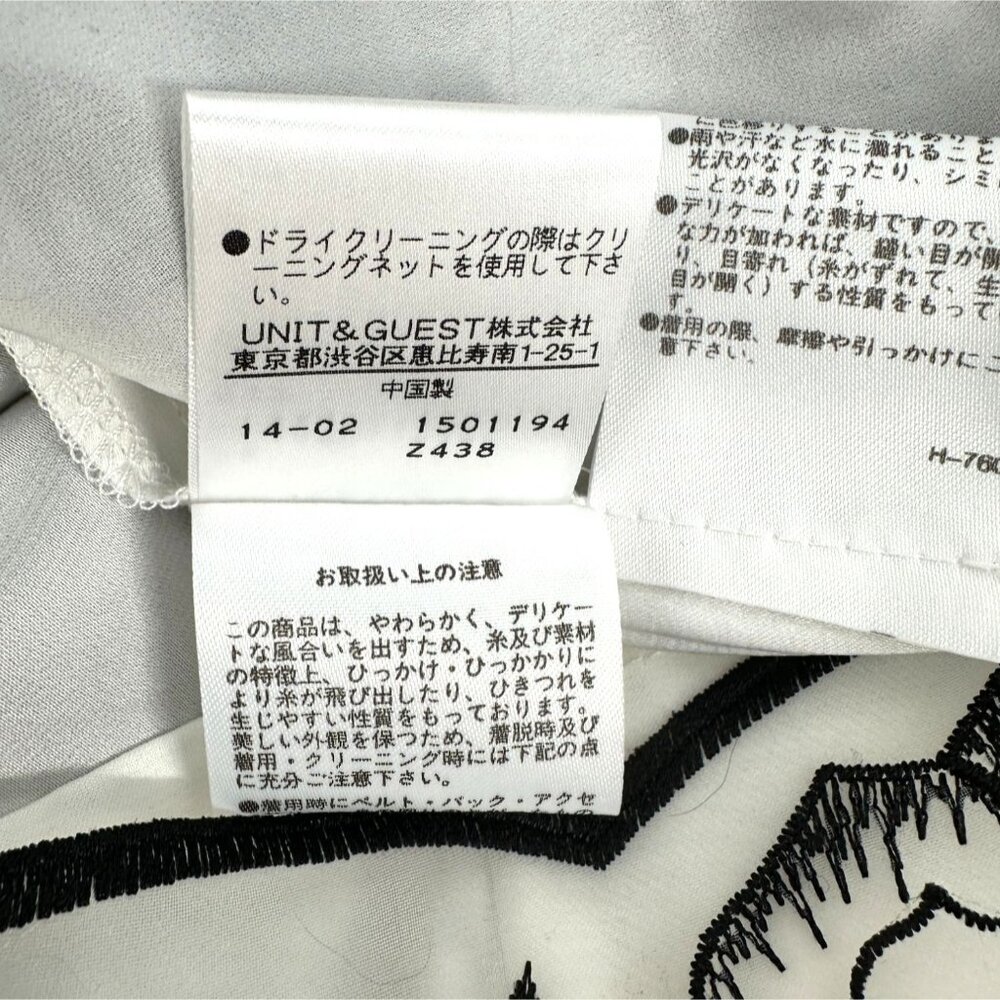 ●ドライクリーニングの際はクリ
ーニングネットを使用して下さ
い。
UNIT&GUEST株式会社
東京都渋谷区恵比寿南1-25-1
中国製
14-02 1501194
Z438
お取扱い上の注意
この商品は、やわらかく、デリケー
トな風合いを出すため、糸及び素材
の特徴上、ひっかけ・ひっかかりに
より糸が飛び出したり、ひきつれを
生じやすい性質をもっております。
美しい外観を保つため、着脱時及び
着用・クリーニング時には下記の点
に充分ご注意下さい。
●着用時にベルト・バック・アクセ
●雨や汗など水に濡れること
光沢がなくなったり、シミ
ことがあります。
●デリケートな素材ですので、
な力が加われば、縫い目が開
り、目寄れ(糸がずれて、生
目が開く)する性質をもって
す。
●着用の際、摩擦や引っかけにご
意下さい。
H-760